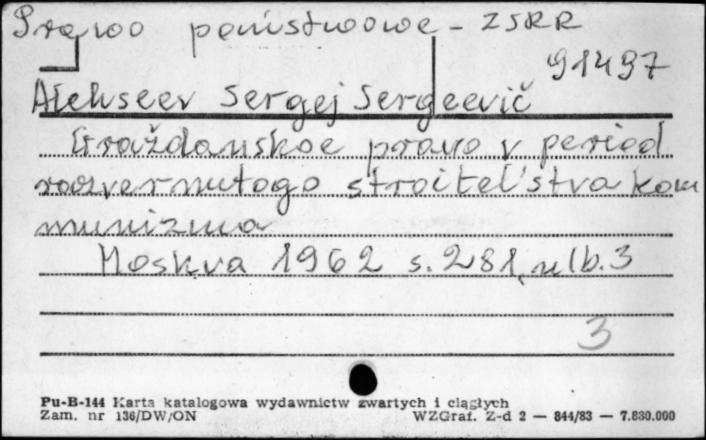 Prawo państwowe - ZSRR
91497
Alekseev Sergej Sergeevič
Graždanskoe pravo v period
razvernutogo stroitel'stva kom
munizma
Moskva 1962 s. 281, nlb. 3
3
Pu-B-144 Karta katalogowa wydawnictw zwartych i ciągłych
Zam. nr 136/DW/ON WZGraf. Z-d 2 — 844/83 — 7.830.000